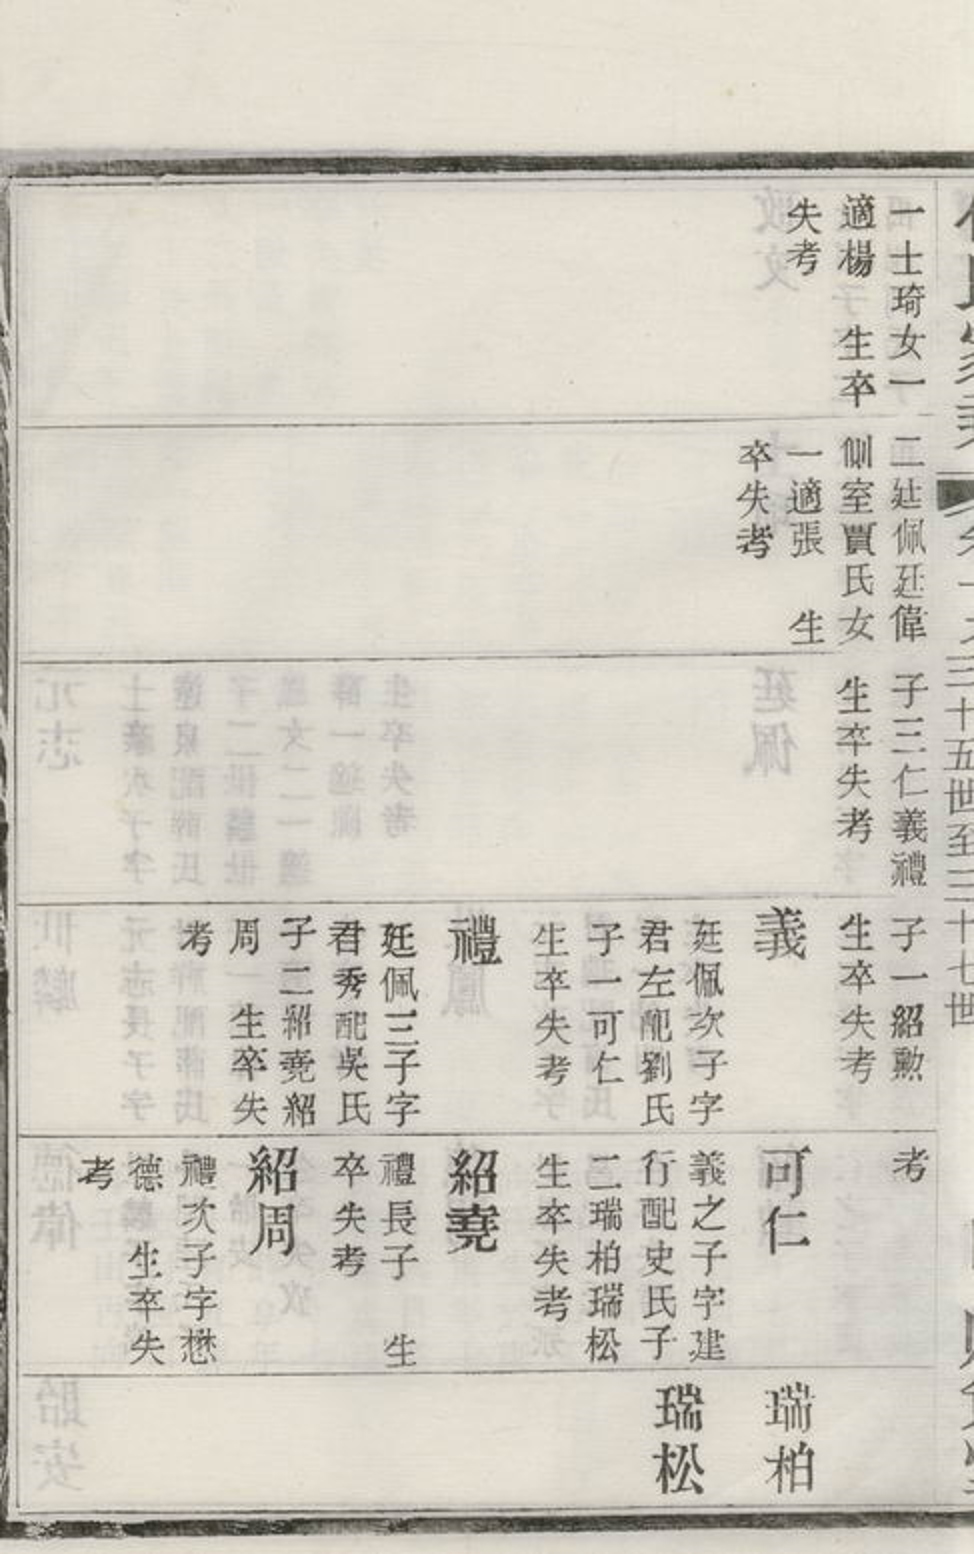 一士琦女一
適楊　生卒
失考
二廷佩廷偉
側室賈氏女
一適張　生
卒失考
子三仁義禮
生卒失考
子一紹勲
生卒失考
義
廷佩次子字
君左配劉氏
子一可仁
生卒失考
禮
廷佩三子字
君秀配吳氏
子二紹堯紹
周　生卒失
考
考
可仁
義之子字建
行配史氏子
二瑞柏瑞松
生卒失考
紹堯
禮長子　生
卒失考
紹周
禮次子字懋
德　生卒失
考
瑞柏
瑞松
三十五世至三十七世